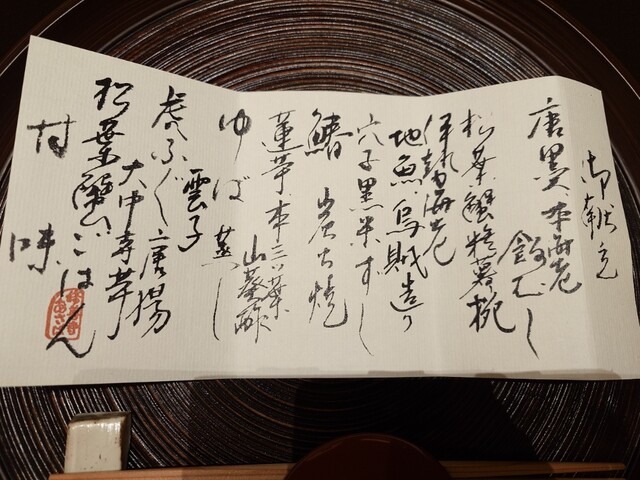 御献立
唐墨 車海老
飯むし
松葉蟹真薯椀
伊勢海老
地魚 烏賊 造り
穴子黒米ずし
鰆 炭火焼
蓮芋 本三ツ葉
山葵酢
ゆば蒸し
雲子
虎ふぐ唐揚
大中寺芋
松葉蟹ごはん
甘味